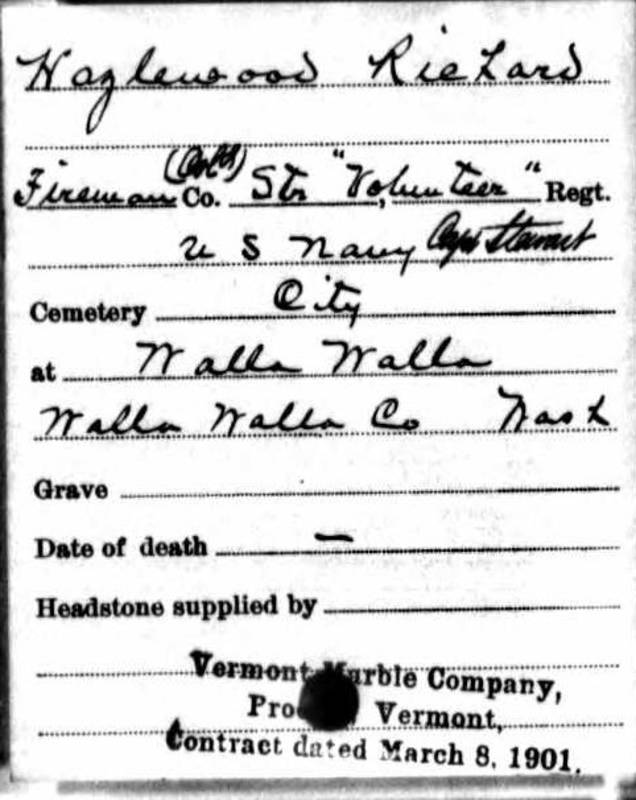 Hazlewood Richard
Fireman (Col'd) Co. Str "Volunteer" Regt.
U S Navy Capt Stewart
Cemetery City
at Walla Walla
Walla Walla Co Wash
Grave
Date of death —
Headstone supplied by
Vermont Marble Company,
Pro Vermont,
Contract dated March 8, 1901.